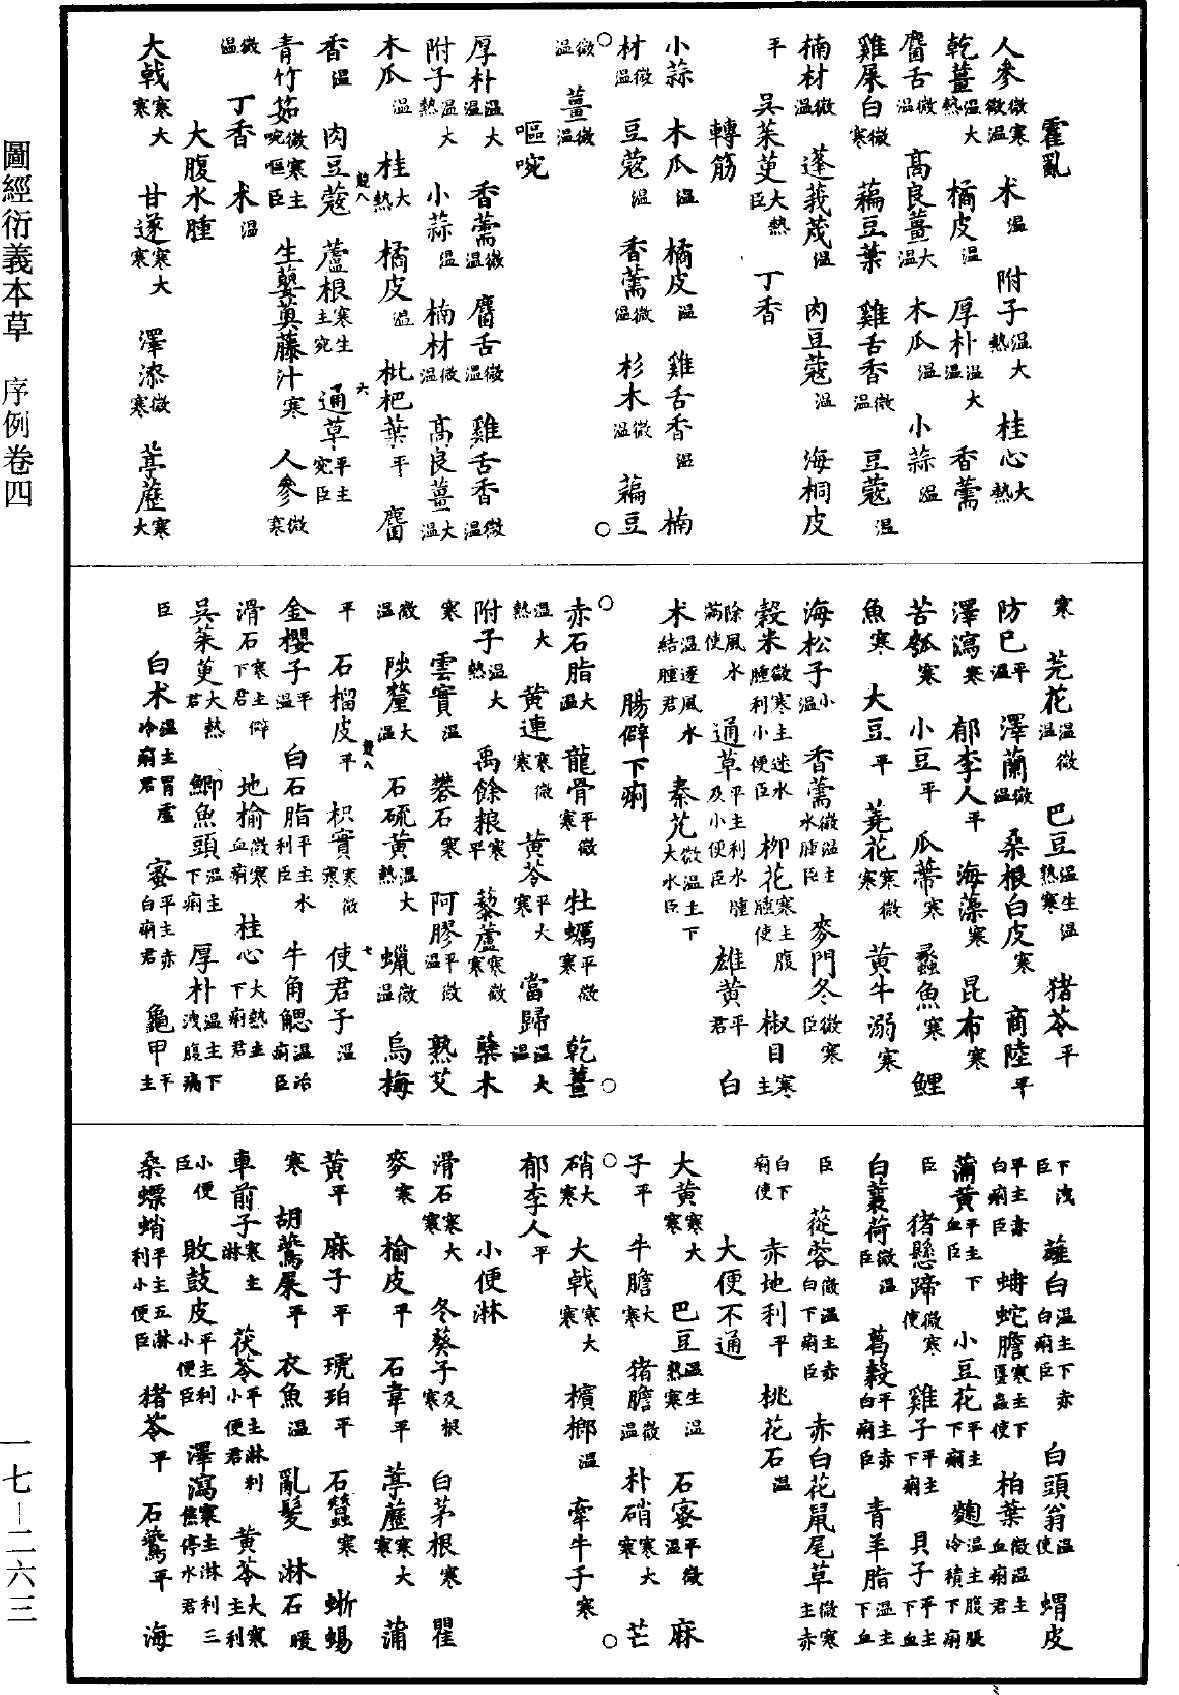 霍亂
人參微寒微溫　术溫　附子溫大熱　桂心大熱
乾薑溫大熱　橘皮溫　厚朴溫大溫　香薷
麕舌微溫　高良薑大溫　木瓜溫　小蒜溫
雞屎白微寒　藊豆葉　雞舌香微溫　豆蔻溫
楠材微溫　蓬莪茂溫　肉豆蔻溫　海桐皮
平　吳茱萸大熱臣　丁香
轉筋
小蒜　木瓜溫　橘皮溫　雞舌香溫　楠
材微溫　豆蔻溫　香薷微溫　杉木微溫　藊豆
微溫　薑微溫
嘔啘
厚朴溫大溫　香薷微溫　麕舌微溫　雞舌香微溫
附子溫大熱　小蒜溫　楠材微溫　高良薑大溫
木瓜溫　桂大熱　橘皮溫　枇杷葉平　麕
香溫　肉豆蔻　蘆根寒生主宛　通草平主宛臣
青竹茹微寒主啘嘔臣　生蘡薁藤汁寒　人參微寒
微溫　丁香　术溫
大腹水腫
大戟寒大寒　甘遂寒大寒　澤漆微寒　葶藶寒大
寒　芫花溫微溫　巴豆溫生溫熱寒　猪苓平
防已平溫　澤蘭微溫　桑根白皮寒　商陸平
澤瀉寒　郁李人平　海藻寒　昆布寒
苦瓠寒　小豆平　瓜蔕寒　蠡魚寒　鯉
魚寒　大豆平　蕘花寒微寒　黃牛溺寒
海松子小溫　香薷微溫主水腫臣　麥門冬微寒臣
穀米微寒主逐水腫利小便臣　柳花寒主腹腫使　椒目寒主
除風水滿使　通草平主利水腫及小便臣　雄黃平君　白
术溫逐風水結腫君　秦艽微溫主下大水臣
腸澼下痢
赤石脂大溫　龍骨平微寒　牡蠣平微寒　乾薑
溫大熱　黃連寒微寒　黃芩平大寒　當歸溫大溫
附子溫大熱　禹餘粮寒平　藜蘆寒微寒　蘗木
寒　雲實溫　礬石寒　阿膠平微溫　熟艾
微溫　陟釐大溫　石硫黃溫大熱　蠟微溫　烏梅
平　石榴皮平　枳實寒微寒　使君子溫
金櫻子平溫　白石脂平主水利臣　牛角䚡溫治痢臣
滑石寒主澼下君　地榆微寒血痢　桂心大熱主下痢君
吳茱萸大熱君　鯽魚頭溫主下痢　厚朴溫主下洩腹痛
臣　白术溫主胃虛冷痢君　蜜平主赤白痢君　龜甲平主
下洩臣　薤白溫主下赤白痢臣　白頭翁溫使　蝟皮
平主赤白痢臣　蚺蛇膽寒主下䘌蟲使　柏葉微溫主血痢君
蒲黃平主下血臣　小豆花平主下痢　麴溫主腹脹冷積下痢
臣　猪懸蹄微寒使　雞子平主下痢　貝子平主下血
白蘘荷微溫臣　葛穀平主赤白痢臣　青羊脂溫主下血
臣　蓯蓉微溫主赤白下痢臣　赤白花鼠尾草微寒主赤
白下痢使　赤地利平　桃花石溫
大便不通
大黃寒大寒　巴豆溫生溫熱寒　石蜜平微溫　麻
子平　牛膽大寒　猪膽微溫　朴硝寒大寒　芒
硝大寒　大戟寒大寒　檳榔溫　牽牛子寒
郁李人平
小便淋
滑石寒大寒　冬葵子及根寒　白茅根寒　瞿
麥寒　榆皮平　石韋平　葶藶寒大寒　蒲
黃平　麻子平　琥珀平　石蠶寒　蜥蜴
寒　胡鷰屎平　衣魚溫　亂髮　淋石暖
車前子寒主淋　茯苓平主淋利小便君　黃芩大寒主利
小便臣　敗鼓皮平主利小便臣　澤瀉寒主淋利三焦停水君
桑螵蛸平主五淋利小便臣　猪苓平　石鷰平　海
圖經衍義本草　序例卷四
一七－二六三